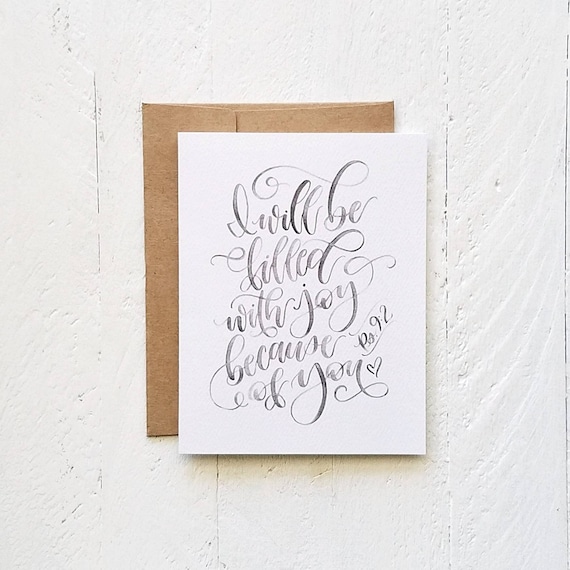 I will be
filled
with joy
because
of you
Ps. 9:2